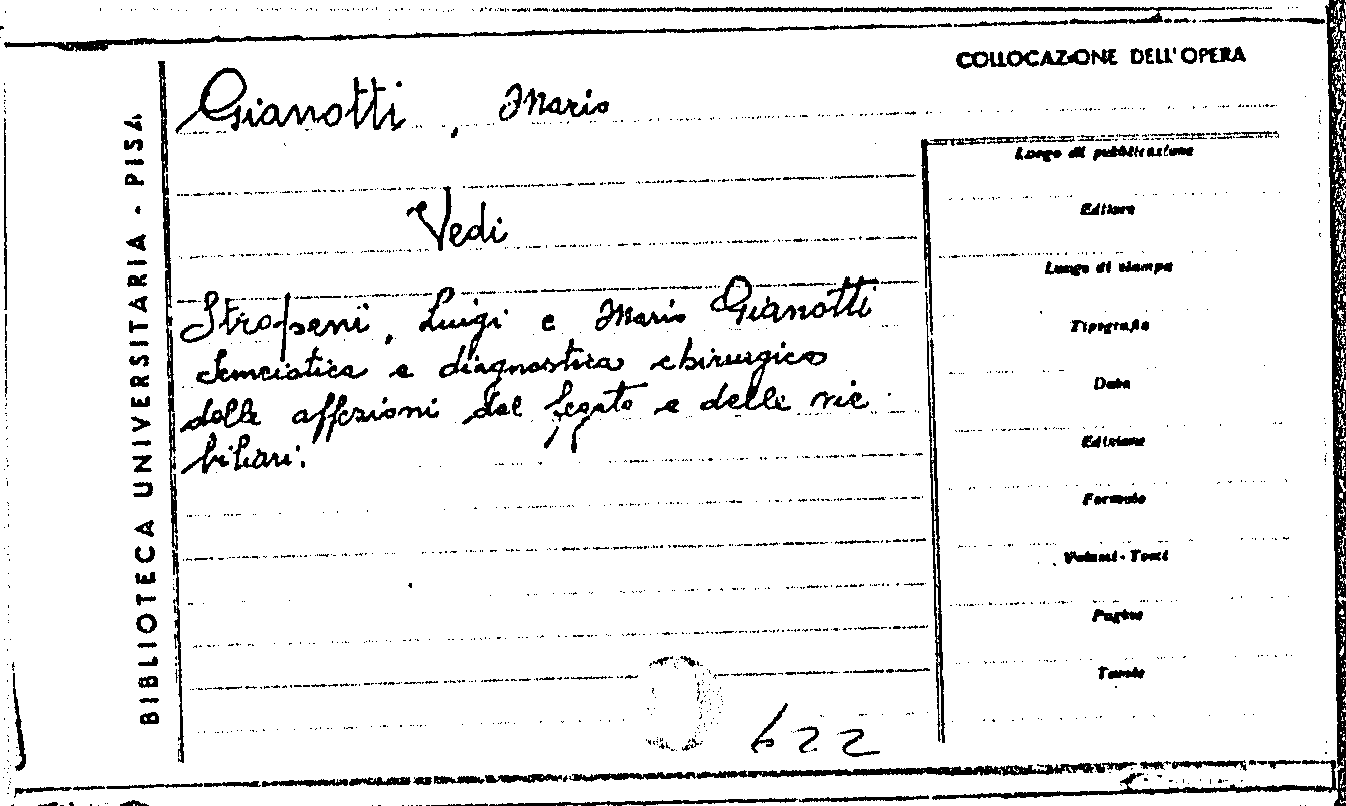 COLLOCAZIONE DELL'OPERA
BIBLIOTECA UNIVERSITARIA - PISA
Gianotti, Mario
Vedi
Stropeni, Luigi e Mario Gianotti
Semeiotica e diagnostica chirurgica
delle affezioni del fegato e delle vie
biliari.
622
Luogo di pubblicazione
Editore
Luogo di stampa
Tipografia
Data
Edizione
Formato
Volumi - Tomi
Pagine
Tavole